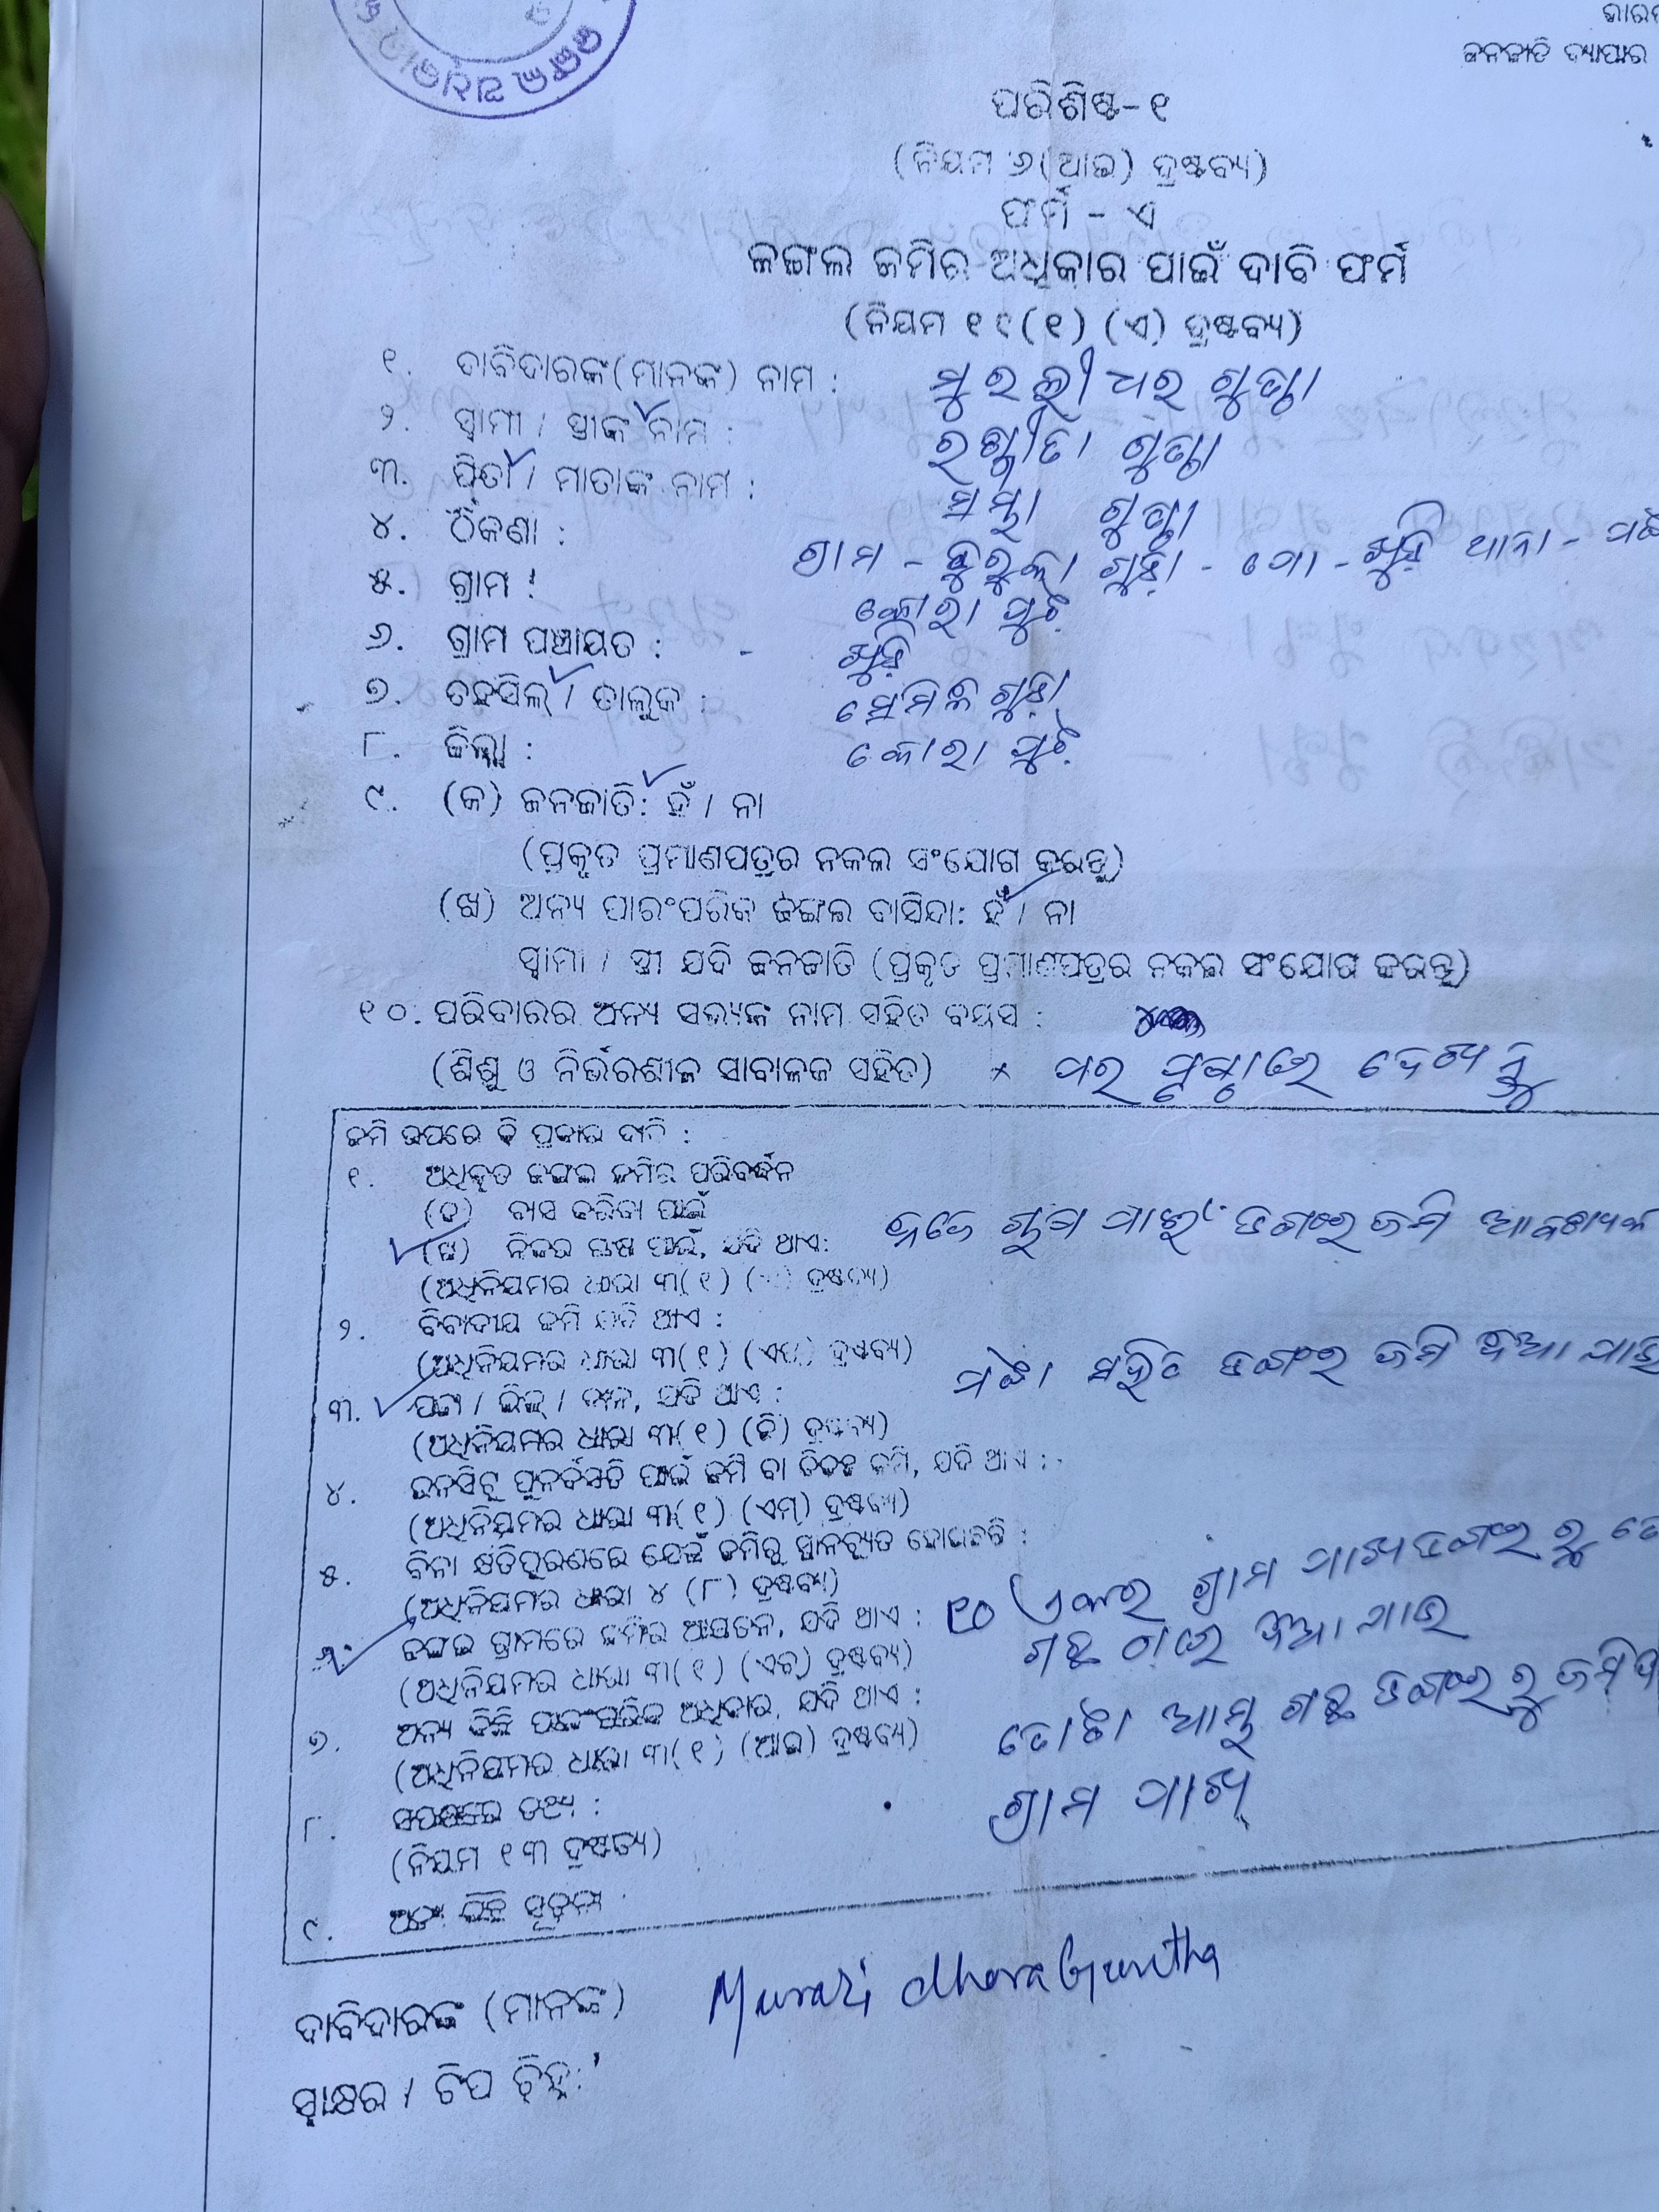 ଜଙ୍ଗଲ ଅଧିକାର
ଜନଜାତି ବ୍ୟାପାର
ପରିଶିଷ୍ଟ-୧
(ନିୟମ ୬(ଆଇ) ଦ୍ରଷ୍ଟବ୍ୟ)
ଫର୍ମ - ଏ
ଜଙ୍ଗଲ ଜମିର ଅଧିକାର ପାଇଁ ଦାବି ଫର୍ମ
(ନିୟମ ୧୧(୧) (ଏ) ଦ୍ରଷ୍ଟବ୍ୟ)
୧. ଦାବିଦାରଙ୍କ(ମାନଙ୍କ) ନାମ : ମୁରଲୀଧର ଗୁଣ୍ଠା
୨. ସ୍ୱାମୀ / ସ୍ତ୍ରୀଙ୍କ ନାମ : ଗୁଣ୍ଠା
୩. ପିତା / ମାତାଙ୍କ ନାମ : ଗୁଣ୍ଠା
୪. ଠିକଣା : ଗ୍ରାମ - ଗୁଡ଼ା - ପୋ - ଖୁଡ଼ି ଥାନା -
୫. ଗ୍ରାମ : କୋରାପୁଟ
୬. ଗ୍ରାମ ପଞ୍ଚାୟତ : - ଖୁଡ଼ି
୭. ତହସିଲ୍ / ତାଲୁକ : ସେମିଳିଗୁଡ଼ା
୮. ଜିଲ୍ଲା : କୋରାପୁଟ
୯. (କ) ଜନଜାତି: ହଁ / ନା
(ପ୍ରକୃତ ପ୍ରମାଣପତ୍ରର ନକଲ ସଂଯୋଗ କରନ୍ତୁ)
(ଖ) ଅନ୍ୟ ପାରଂପରିକ ଜଙ୍ଗଲ ବାସିନ୍ଦା: ହଁ / ନା
ସ୍ୱାମୀ / ସ୍ତ୍ରୀ ଯଦି ଜନଜାତି (ପ୍ରକୃତ ପ୍ରମାଣପତ୍ରର ନକଲ ସଂଯୋଗ କରନ୍ତୁ)
୧୦. ପରିବାରର ଅନ୍ୟ ସଭ୍ୟଙ୍କ ନାମ ସହିତ ବୟସ :
(ଶିଶୁ ଓ ନିର୍ଭରଶୀଳ ସାବାଳକ ସହିତ) × ପର ପୃଷ୍ଠାରେ ଦେଖନ୍ତୁ
ଜମି ଉପରେ କି ପ୍ରକାର ଦାବି :
୧. ଅଧିକୃତ ଜଙ୍ଗଲ ଜମିର ପରିବର୍ଦ୍ଧନ
(କ) ବାସ କରିବା ପାଇଁ
(ଖ) ନିଜର ଚାଷ ପାଇଁ, ଯଦି ଥାଏ: ପାଇଁ ଡଙ୍ଗର ଜମି ଆବଶ୍ୟକ
(ଅଧିନିୟମର ଧାରା ୩(୧) (ଏ) ଦ୍ରଷ୍ଟବ୍ୟ)
୨. ବିବାଦୀୟ ଜମି ଯଦି ଥାଏ :
(ଅଧିନିୟମର ଧାରା ୩(୧) (ଏଫ୍) ଦ୍ରଷ୍ଟବ୍ୟ)
୩. ପଟ୍ଟା / ଲିଜ୍ / ଦାନ, ଯଦି ଥାଏ : ପଟ୍ଟା ସହିତ ଡଙ୍ଗର ଜମି ଦିଆଯାଉ
(ଅଧିନିୟମର ଧାରା ୩(୧) (ଜି) ଦ୍ରଷ୍ଟବ୍ୟ)
୪. ଇନସିଟୁ ପୁନର୍ବସତି ପାଇଁ ଜମି ବା ବିକଳ୍ପ ଜମି, ଯଦି ଥାଏ :
(ଅଧିନିୟମର ଧାରା ୩(୧) (ଏମ୍) ଦ୍ରଷ୍ଟବ୍ୟ)
୫. ବିନା କ୍ଷତିପୂରଣରେ ଯେଉଁ ଜମିରୁ ସ୍ଥାନଚ୍ୟୁତ ହୋଇଛନ୍ତି :
(ଅଧିନିୟମର ଧାରା ୪ (୮) ଦ୍ରଷ୍ଟବ୍ୟ)
୬. ଜଙ୍ଗଲ ଗ୍ରାମରେ ଜମିର ଆୟତନ, ଯଦି ଥାଏ : ୧୦ ଏକର ଗ୍ରାମ ପାଖ ଡଙ୍ଗର ରୁ
(ଅଧିନିୟମର ଧାରା ୩(୧) (ଏଚ୍) ଦ୍ରଷ୍ଟବ୍ୟ) ଗଛ ଠାରେ ଦିଆଯାଉ
୭. ଅନ୍ୟ କିଛି ପାରଂପରିକ ଅଧିକାର, ଯଦି ଥାଏ :
(ଅଧିନିୟମର ଧାରା ୩(୧) (ଆଇ) ଦ୍ରଷ୍ଟବ୍ୟ) ଆମ୍ବ ଗଛ ଡଙ୍ଗର ରୁ ଜମି
୮. ସପକ୍ଷରେ ତଥ୍ୟ : ଗ୍ରାମ ପାଖ
(ନିୟମ ୧୩ ଦ୍ରଷ୍ଟବ୍ୟ)
୯. ଅନ୍ୟ କିଛି ସୂଚନା
ଦାବିଦାରଙ୍କ (ମାନଙ୍କ) Murali dhara Guntha
ସ୍ୱାକ୍ଷର / ଟିପ ଚିହ୍ନ: